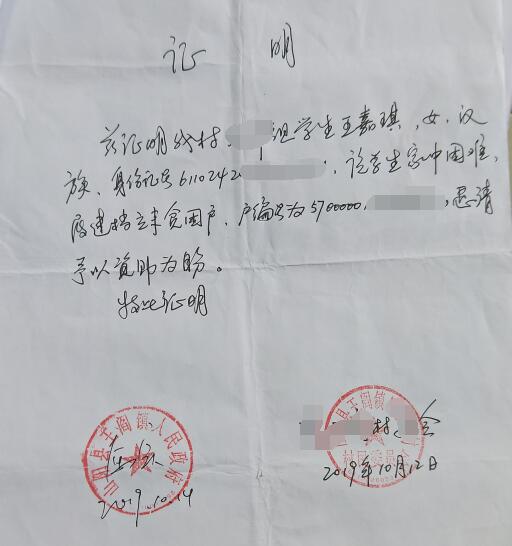 证 明
兹证明我村 组学生王嘉琪,女,汉
族,身份证号6110242 ,该学生家中困难,
属建档立卡贫困户,户编号为5700000, ,恳请
予以资助为盼。
特此证明
山阳县王阎镇人民政府
2019.10.14
县王阎镇 村 会
村民委员会
2019年10月12日